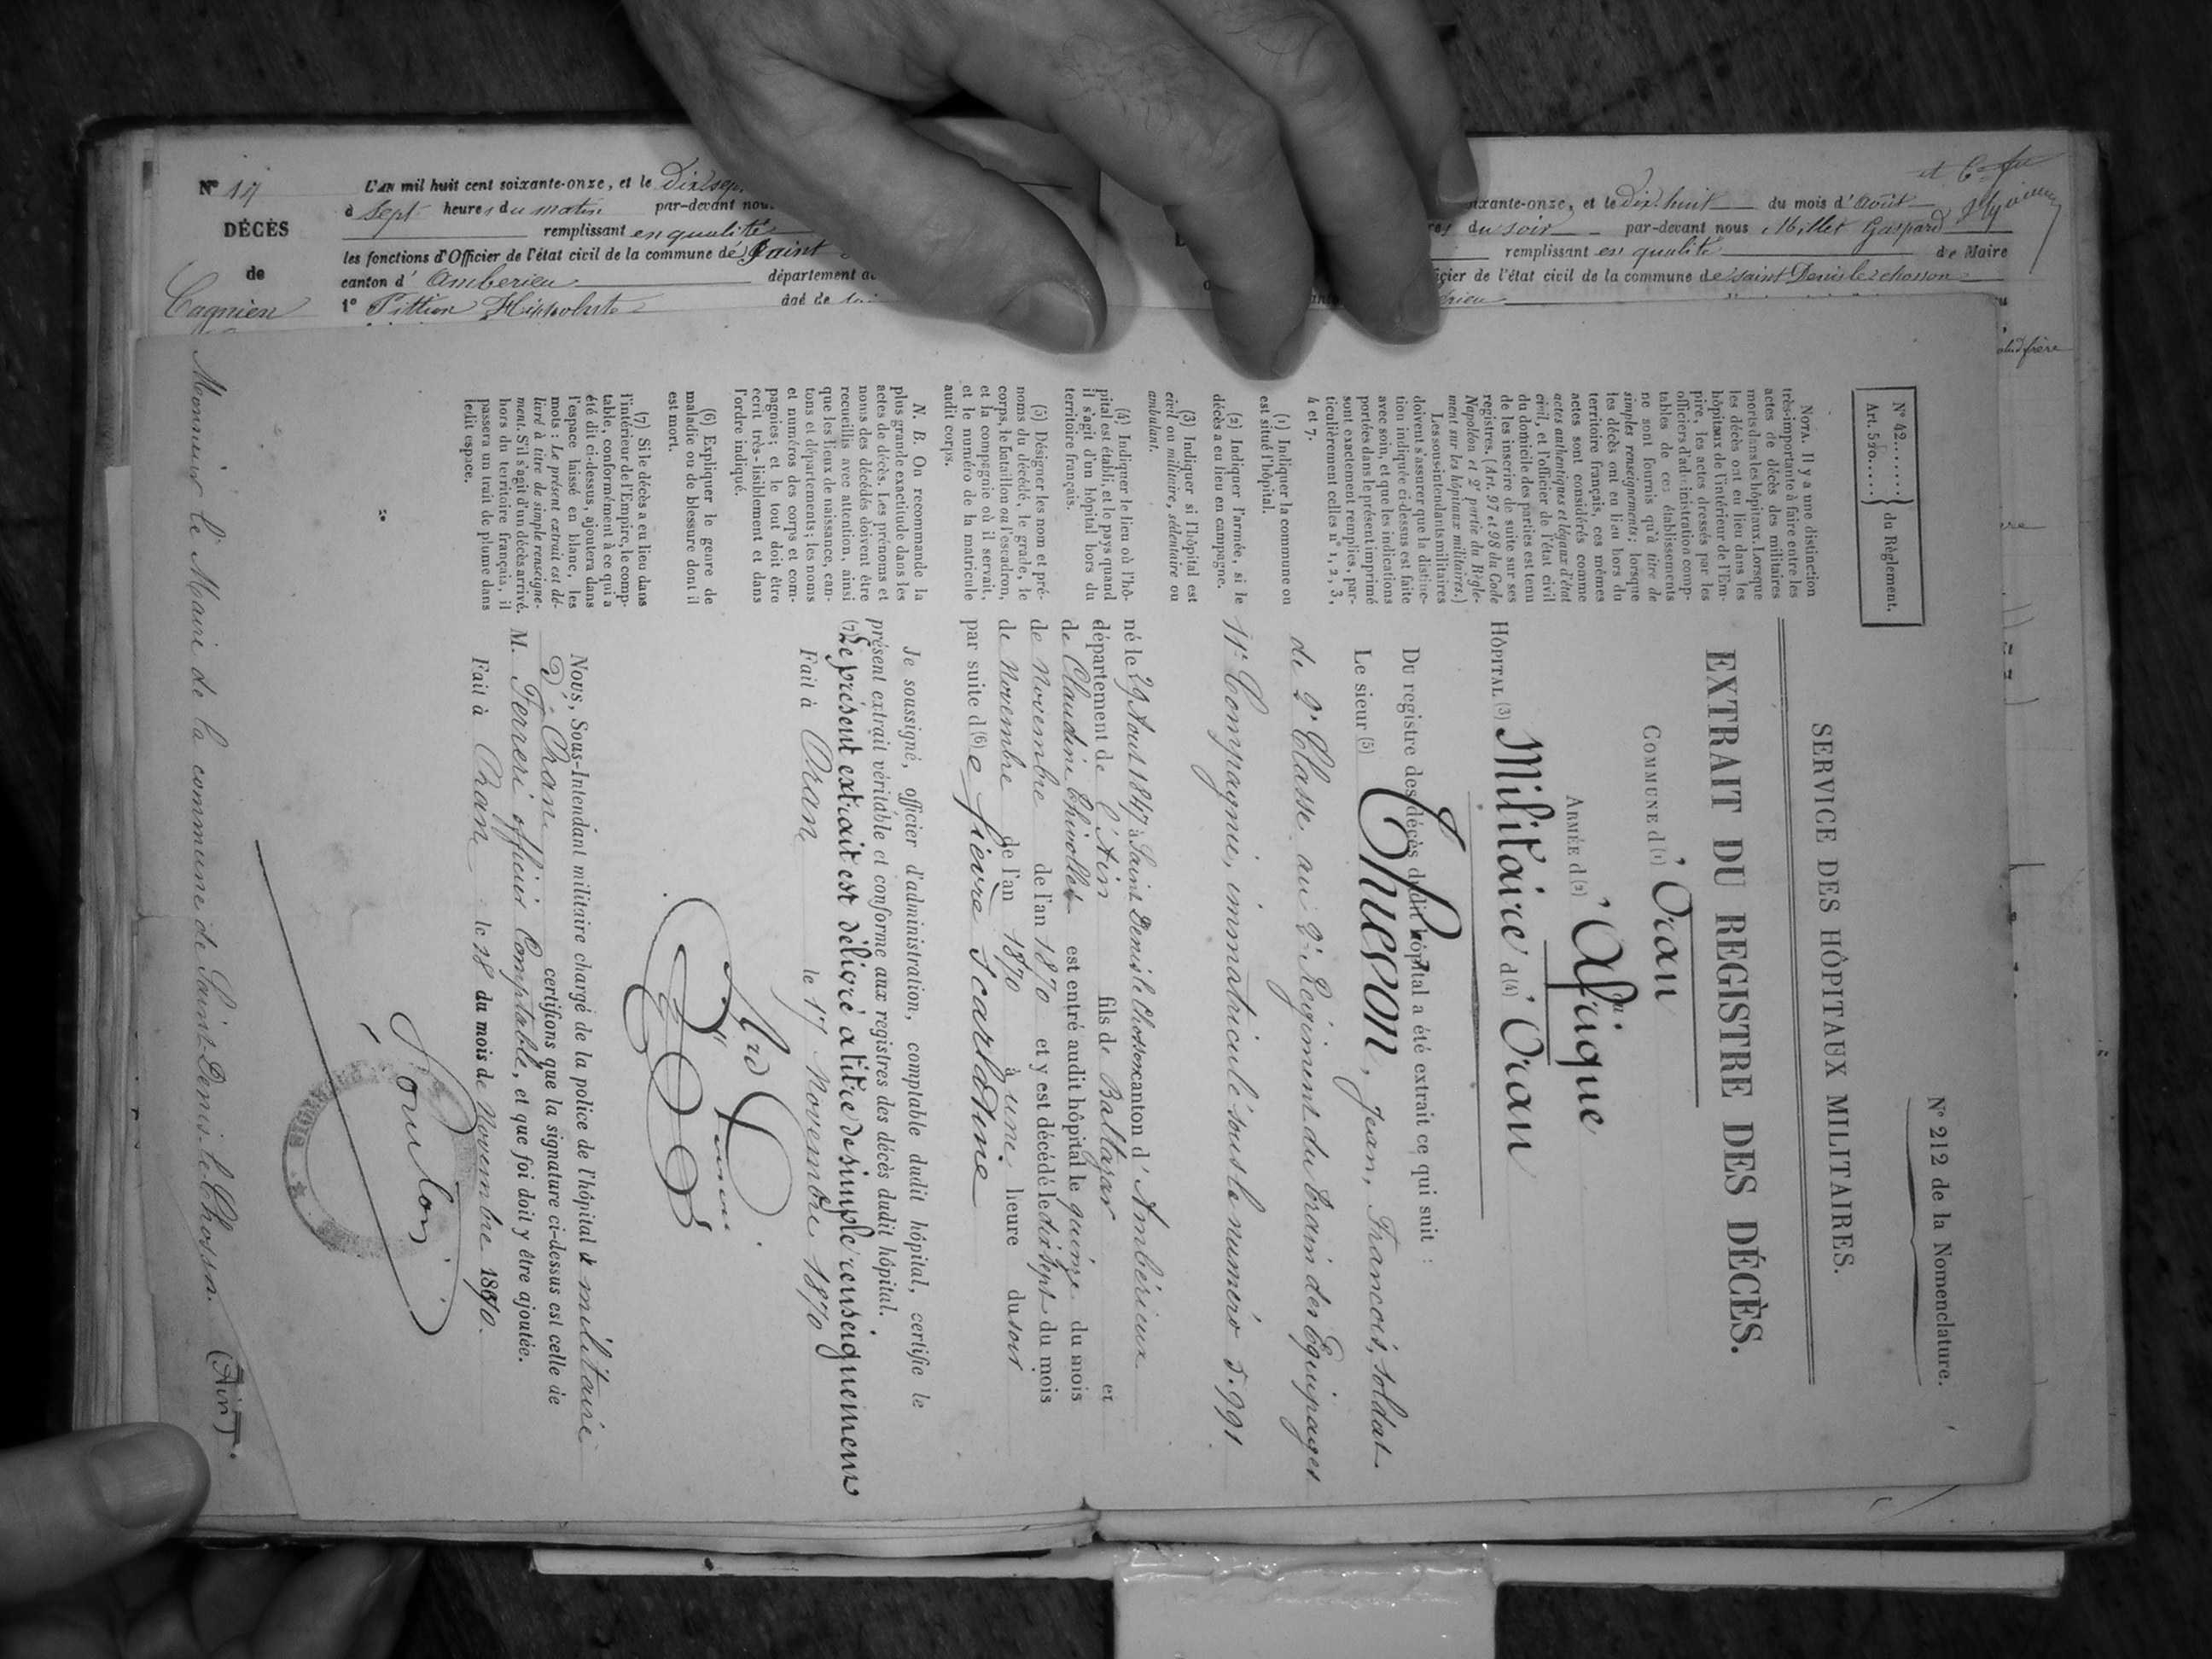 N° 17
DÉCÈS
de
Cagnien
L'AN mil huit cent soixante-onze, et le Dix sep
à Sept heures du matin par-devant nou
remplissant en qualité
les fonctions d'Officier de l'état civil de la commune de Saint
canton d' Amberieu département d
1° Pittion Hippolyte âgé de
ixante-onze, et le Dix-huit du mois d'Août
res du soir par-devant nous Millet Gaspard
remplissant en qualité de Maire
cier de l'état civil de la commune de saint Denis le chosson
érieu
N° 212 de la Nomenclature.
N° 42
Art. 520
du Règlement.
SERVICE DES HÔPITAUX MILITAIRES.
EXTRAIT DU REGISTRE DES DÉCÈS.
COMMUNE d (1) 'Oran
ARMÉE d (2) 'Afrique
HÔPITAL (3) Militaire d (4) 'Oran
Du registre des décès dudit hôpital a été extrait ce qui suit :
Le sieur (5) Thueson, Jean, Francois, soldat
de 2e Classe au 2e Régiment du train des Equipages
11e Compagnie, immatriculé sous le numéro 5.991
né le 29 Aout 1847 à Saint Denis le Chosson canton d' Ambérieux
département de l'Ain fils de Baltazar et
de Claudine Chivollet est entré audit hôpital le quinze du mois
de Novembre de l'an 1870 et y est décédé le dix sept du mois
de Novembre de l'an 1870 à une heure du soir
par suite d (6) e fièvre scarlatine
Je soussigné, officier d'administration, comptable dudit hôpital, certifie le
présent extrait véritable et conforme aux registres des décès dudit hôpital.
(7) Le présent extrait est délivré à titre de simple renseignement
Fait à Oran le 17 Novembre 1870
Nous, Sous-Intendant militaire chargé de la police de l'hôpital militaire
d'Oran certifions que la signature ci-dessus est celle de
M. Ferreri officier Comptable, et que foi doit y être ajoutée.
Fait à Oran le 18 du mois de Novembre 1870.
NOTA. Il y a une distinction
très-importante à faire entre les
actes de décès des militaires
morts dans les hôpitaux. Lorsque
les décès ont eu lieu dans les
hôpitaux de l'intérieur de l'Em-
pire, les actes dressés par les
officiers d'administration comp-
tables de ces établissements
ne sont fournis qu'à titre de
simples renseignements; lorsque
les décès ont eu lieu hors du
territoire français, ces mêmes
actes sont considérés comme
actes authentiques et légaux d'état
civil, et l'officier de l'état civil
du domicile des parties est tenu
de les inscrire de suite sur ses
registres. (Art. 97 et 98 du Code
Napoléon et 2e partie du Règle-
ment sur les hôpitaux militaires.)
Les sous-intendants militaires
doivent s'assurer que la distinc-
tion indiquée ci-dessus est faite
avec soin, et que les indications
portées dans le présent imprimé
sont exactement remplies, par-
ticulièrement celles nos 1, 2, 3,
4 et 7.
(1) Indiquer la commune ou
est situé l'hôpital.
(2) Indiquer l'armée, si le
décès a eu lieu en campagne.
(3) Indiquer si l'hôpital est
civil ou militaire, sédentaire ou
ambulant.
(4) Indiquer le lieu où l'hô-
pital est établi, et le pays quand
il s'agit d'un hôpital hors du
territoire français.
(5) Désigner les nom et pré-
noms du décédé, le grade, le
corps, le bataillon ou l'escadron,
et la compagnie où il servait,
et le numéro de la matricule
audit corps.
N. B. On recommande la
plus grande exactitude dans les
actes de décès. Les prénoms et
noms des décédés doivent être
recueillis avec attention, ainsi
que les lieux de naissance, can-
tons et départements; les noms
et numéros des corps et com-
pagnies; et le tout doit être
écrit très-lisiblement et dans
l'ordre indiqué.
(6) Expliquer le genre de
maladie ou de blessure dont il
est mort.
(7) Si le décès a eu lieu dans
l'intérieur de l'Empire, le comp-
table, conformément à ce qui a
été dit ci-dessus, ajoutera dans
l'espace laissé en blanc, les
mots : Le présent extrait est dé-
livré à titre de simple renseigne-
ment. S'il s'agit d'un décès arrivé
hors du territoire français, il
passera un trait de plume dans
ledit espace.
Monsieur le Maire de la commune de Saint Denis le Chosson. (Ain).